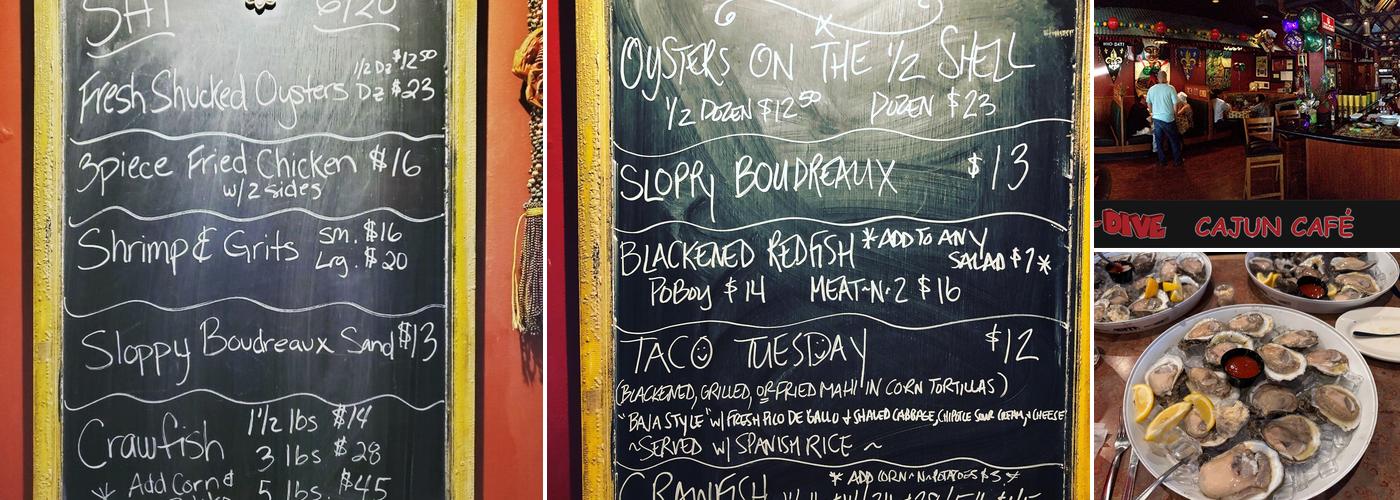 SAT 6/20
Fresh Shucked Oysters 1/2 Dz $12.50
Dz $23
3piece Fried Chicken $16
w/2 sides
Shrimp & Grits sm. $16
Lrg. $20
Sloppy Boudreaux Sand $13
Crawfish 1 1/2 lbs $14
3 lbs $28
Add Corn & 5 lbs $45
OYSTERS ON THE 1/2 SHELL
1/2 DOZEN $12.50 DOZEN $23
SLOPPY BOUDREAUX $13
BLACKENED REDFISH *ADD TO ANY
SALAD $7*
POBOY $14 MEAT-N-2 $16
TACO TUESDAY $12
(BLACKENED, GRILLED, OR FRIED MAHI IN CORN TORTILLAS)
"BAJA STYLE" W/ FRESH PICO DE GALLO & SHAVED CABBAGE, CHIPOTLE SOUR CREAM, & CHEESE
~SERVED W/ SPANISH RICE~
CRAWFISH * ADD CORN-N-POTATOES $3 *
WHO DAT!
-DIVE CAJUN CAFÉ